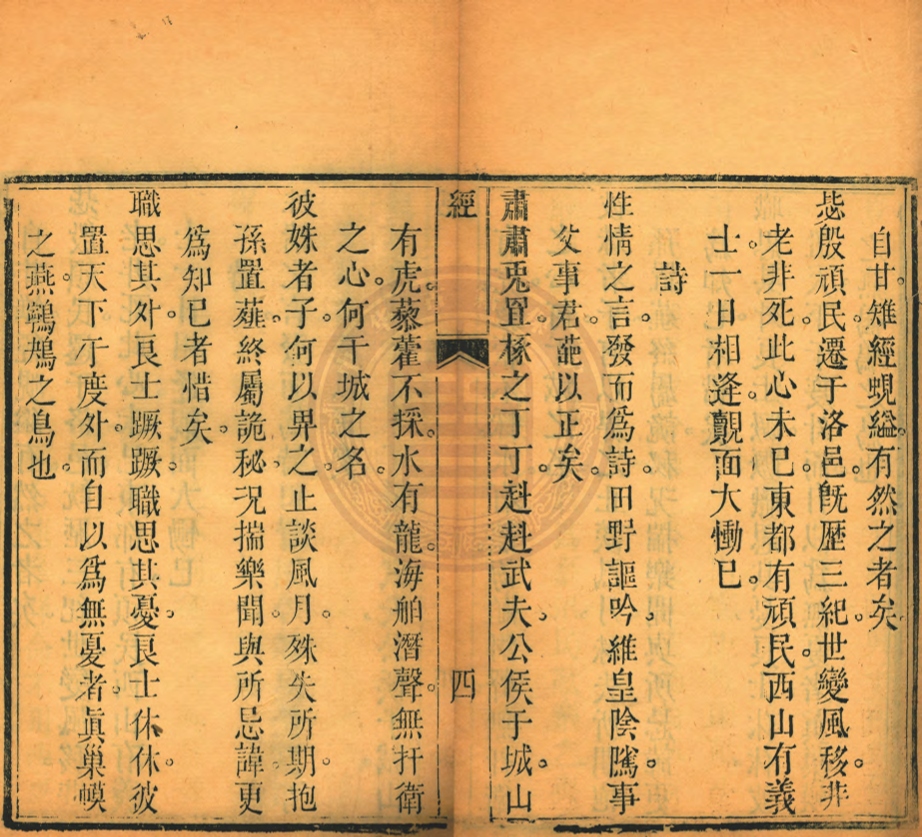 自甘雉經蜆縊有然之者矣
毖殷頑民遷于洛邑旣歷三紀世變風移非
老非死此心未巳東都有頑民西山有義
士一日相逢覿面大慟巳
詩
性情之言發而爲詩田野謳吟維皇陰隲事
父事君葩以正矣
肅肅兎罝椓之丁丁赳赳武夫公侯于城山
經 四
有虎藜藿不採水有龍海舶潛聲無扞衛
之心何干城之名
彼姝者子何以畀之止談風月殊失所期抱
孫置薤終屬詭秘況揣樂聞與所忌諱更
爲知巳者惜矣
職思其外良士蹶蹶職思其憂良士休休彼
置天下于度外而自以爲無憂者眞巢幙
之燕鸋鴂之鳥也